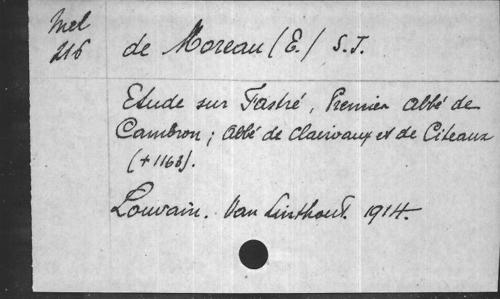 Mel
216
de Moreau (E.) S.J.
Etude sur Fastré, Premier abbé de
Cambron; abbé de Clairvaux et de Citeaux
(+1163).
Louvain. Van Linthout. 1914.